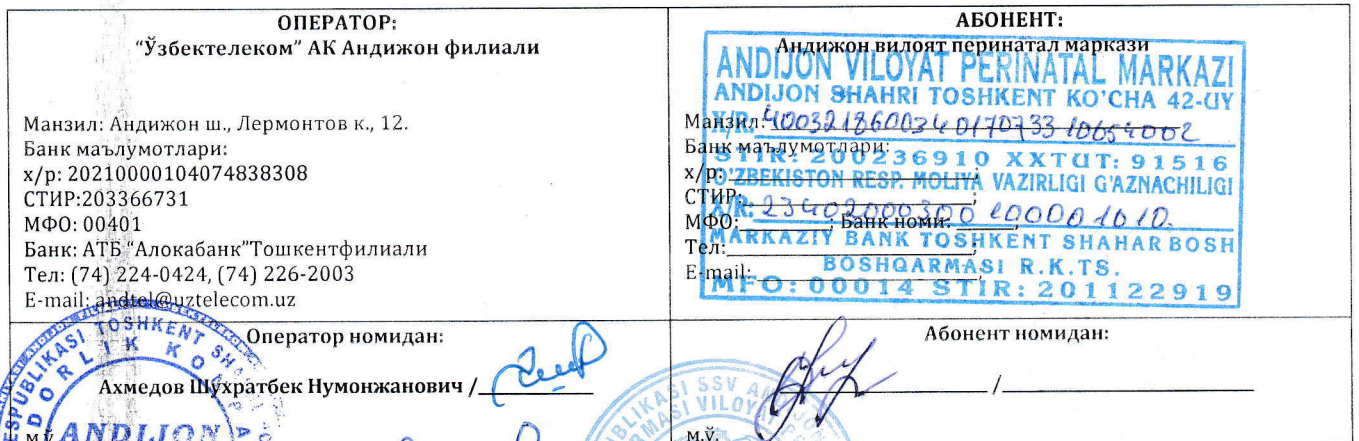 ОПЕРАТОР:
“Ўзбектелеком” АК Андижон филиали
Манзил: Андижон ш., Лермонтов к., 12.
Банк маълумотлари:
х/р: 20210000104074838308
СТИР:203366731
МФО: 00401
Банк: АТБ “Алокабанк”Тошкентфилиали
Тел: (74) 224-0424, (74) 226-2003
E-mail: andtel@uztelecom.uz
АБОНЕНТ:
Андижон вилоят перинатал маркази
ANDIJON VILOYAT PERINATAL MARKAZI
ANDIJON SHAHRI TOSHKENT KO'CHA 42-UY
Манзил:
X/R: 400321860034017073310654002
Банк маълумотлари:
STIR: 200236910 XXTUT: 91516
х/р:
O'ZBEKISTON RESP. MOLIYA VAZIRLIGI G'AZNACHILIGI
СТИР:
X/R: 23402000300100001010
МФО: ; Банк номи:
MARKAZIY BANK TOSHKENT SHAHAR BOSH
Тел:
BOSHQARMASI R.K.TS.
E-mail:
MFO: 00014 STIR: 201122919
Оператор номидан:
Ахмедов Шухратбек Нумонжанович /
м.ў.
ANDIJON
Абонент номидан:
/
м.ў.